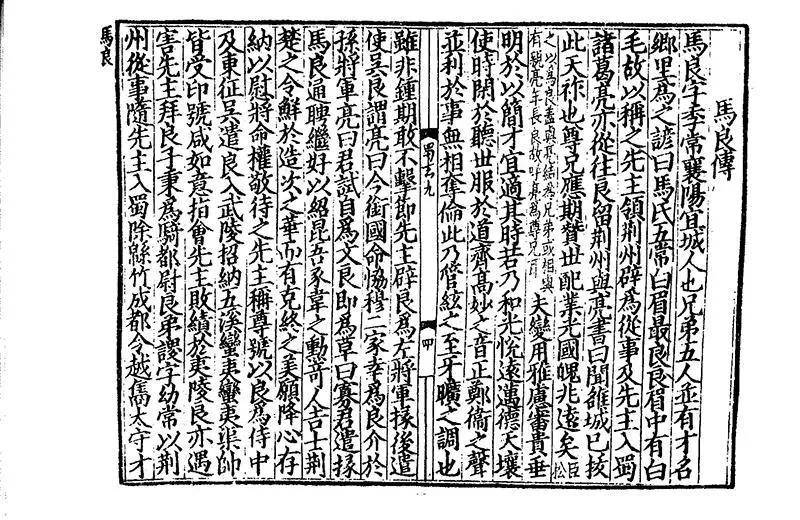 馬良傳
馬良字季常襄陽宜城人也兄弟五人並有才名
鄉里為之諺曰馬氏五常白眉最良良眉中有白
毛故以稱之先主領荊州辟為從事及先主入蜀
諸葛亮亦從往良留荊州與亮書曰聞雒城已拔
此天祚也尊兄應期贊世配業光國魄兆遠矣臣松
之以為良盖與亮結為兄弟或相與
有親亮年長良故呼亮為尊兄耳
夫變用雅慮審貴垂
明於以簡才宜適其時若乃和光悅遠邁德天壤
使時閑於聽世服於道齊高妙之音正鄭衞之聲
並利於事無相奪倫此乃管絃之至牙曠之調也
蜀志九
四
雖非鍾期敢不擊節先主辟良為左將軍掾後遣
使吳良謂亮曰今銜國命恊穆二家幸為良介於
孫將軍亮曰君試自為文良即為草曰寡君遣掾
馬良通聘繼好以紹昆吾豕韋之勳奇人吉士荊
楚之令鮮於造次之華而有克終之美願降心存
納以慰將命權敬待之先主稱尊號以良為侍中
及東征吳遣良入武陵招納五溪蠻夷蠻夷渠帥
皆受印號咸如意指會先主敗績於夷陵良亦遇
害先主拜良子秉為騎都尉良弟謖字幼常以荊
州從事隨先主入蜀除緜竹成都令越嶲太守才
馬良